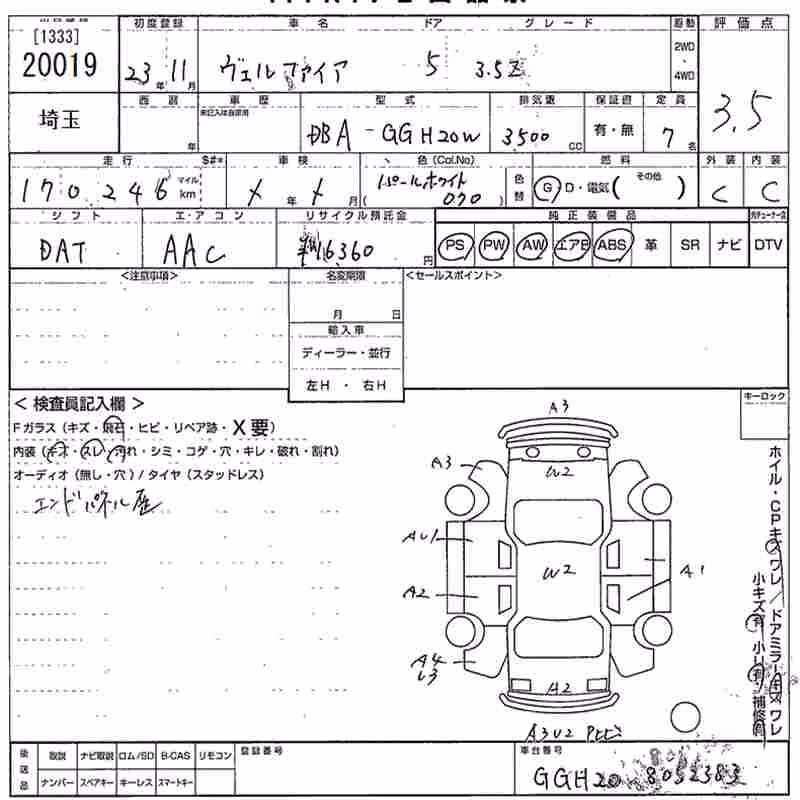 [1333]
初度登録 車名 ドア グレード 駆動 評価点
20019 23年11月 ヴェルファイア 5 3.5Z 2WD・4WD 3.5
埼玉
西暦 車歴 型式 排気量 保証書 定員
年 未記入は自家用 DBA-GGH20W 3500cc 有・無 7名
走行 S#* 車検 色(Col.No) 燃料 外装 内装
170,246 マイル km X年X月 パールホワイト 070 色替 G D・電気( その他 ) C C
シフト エアコン リサイクル預託金 純正装備品
DAT AAC 16360円 PS PW AW エアB ABS 革 SR ナビ DTV
<注意事項> 名変期限 <セールスポイント>
月 日
輸入車
ディーラー・並行
左H・右H
<検査員記入欄> キーロック
Fガラス(キズ・飛石・ヒビ・リペア跡・X要)
内装(キズ・スレ・汚れ・シミ・コゲ・穴・キレ・破れ・割れ)
オーディオ(無し・穴)/タイヤ(スタッドレス)
エンドパネル歴
A3
A3 W2
AU1
A2 W2 A1
A4
A2
A3U2
ホイル・CPキズワレ/ドアミラーキズワレ
小キズ有 小凹有 補修有
後送品 取説 ナビ取説 ロム/SD B-CAS リモコン 登録番号 車台番号
ナンバー スペアキー キーレス スマートキー GGH20 8052383